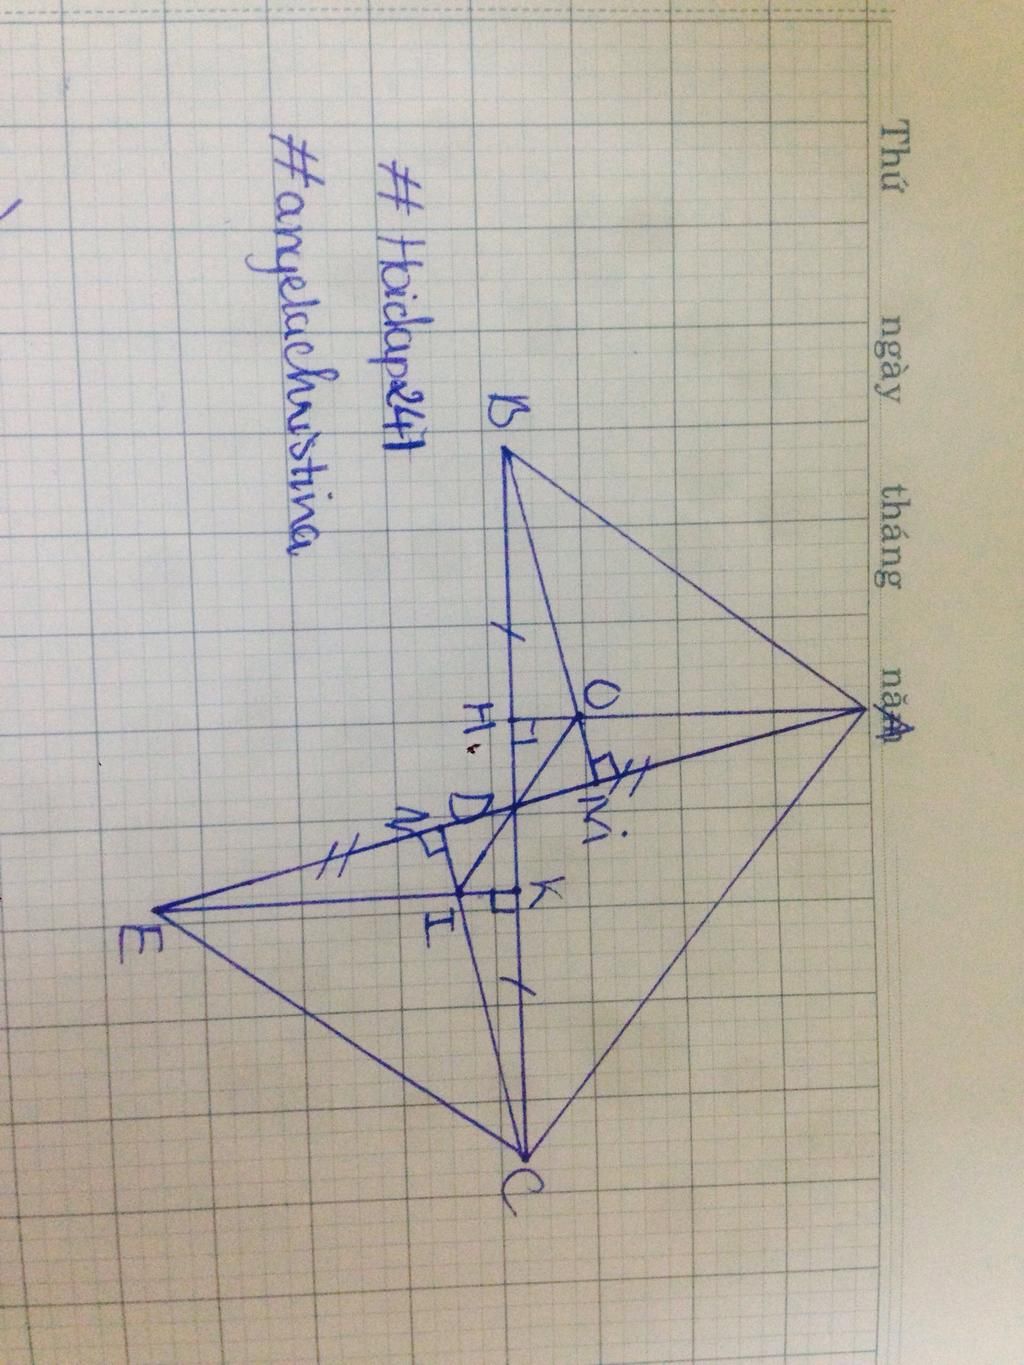 Thứ ngày tháng nă
A
# Hoidap247
#angelachristina
B
O
H
M
D
N
K
I
E
C